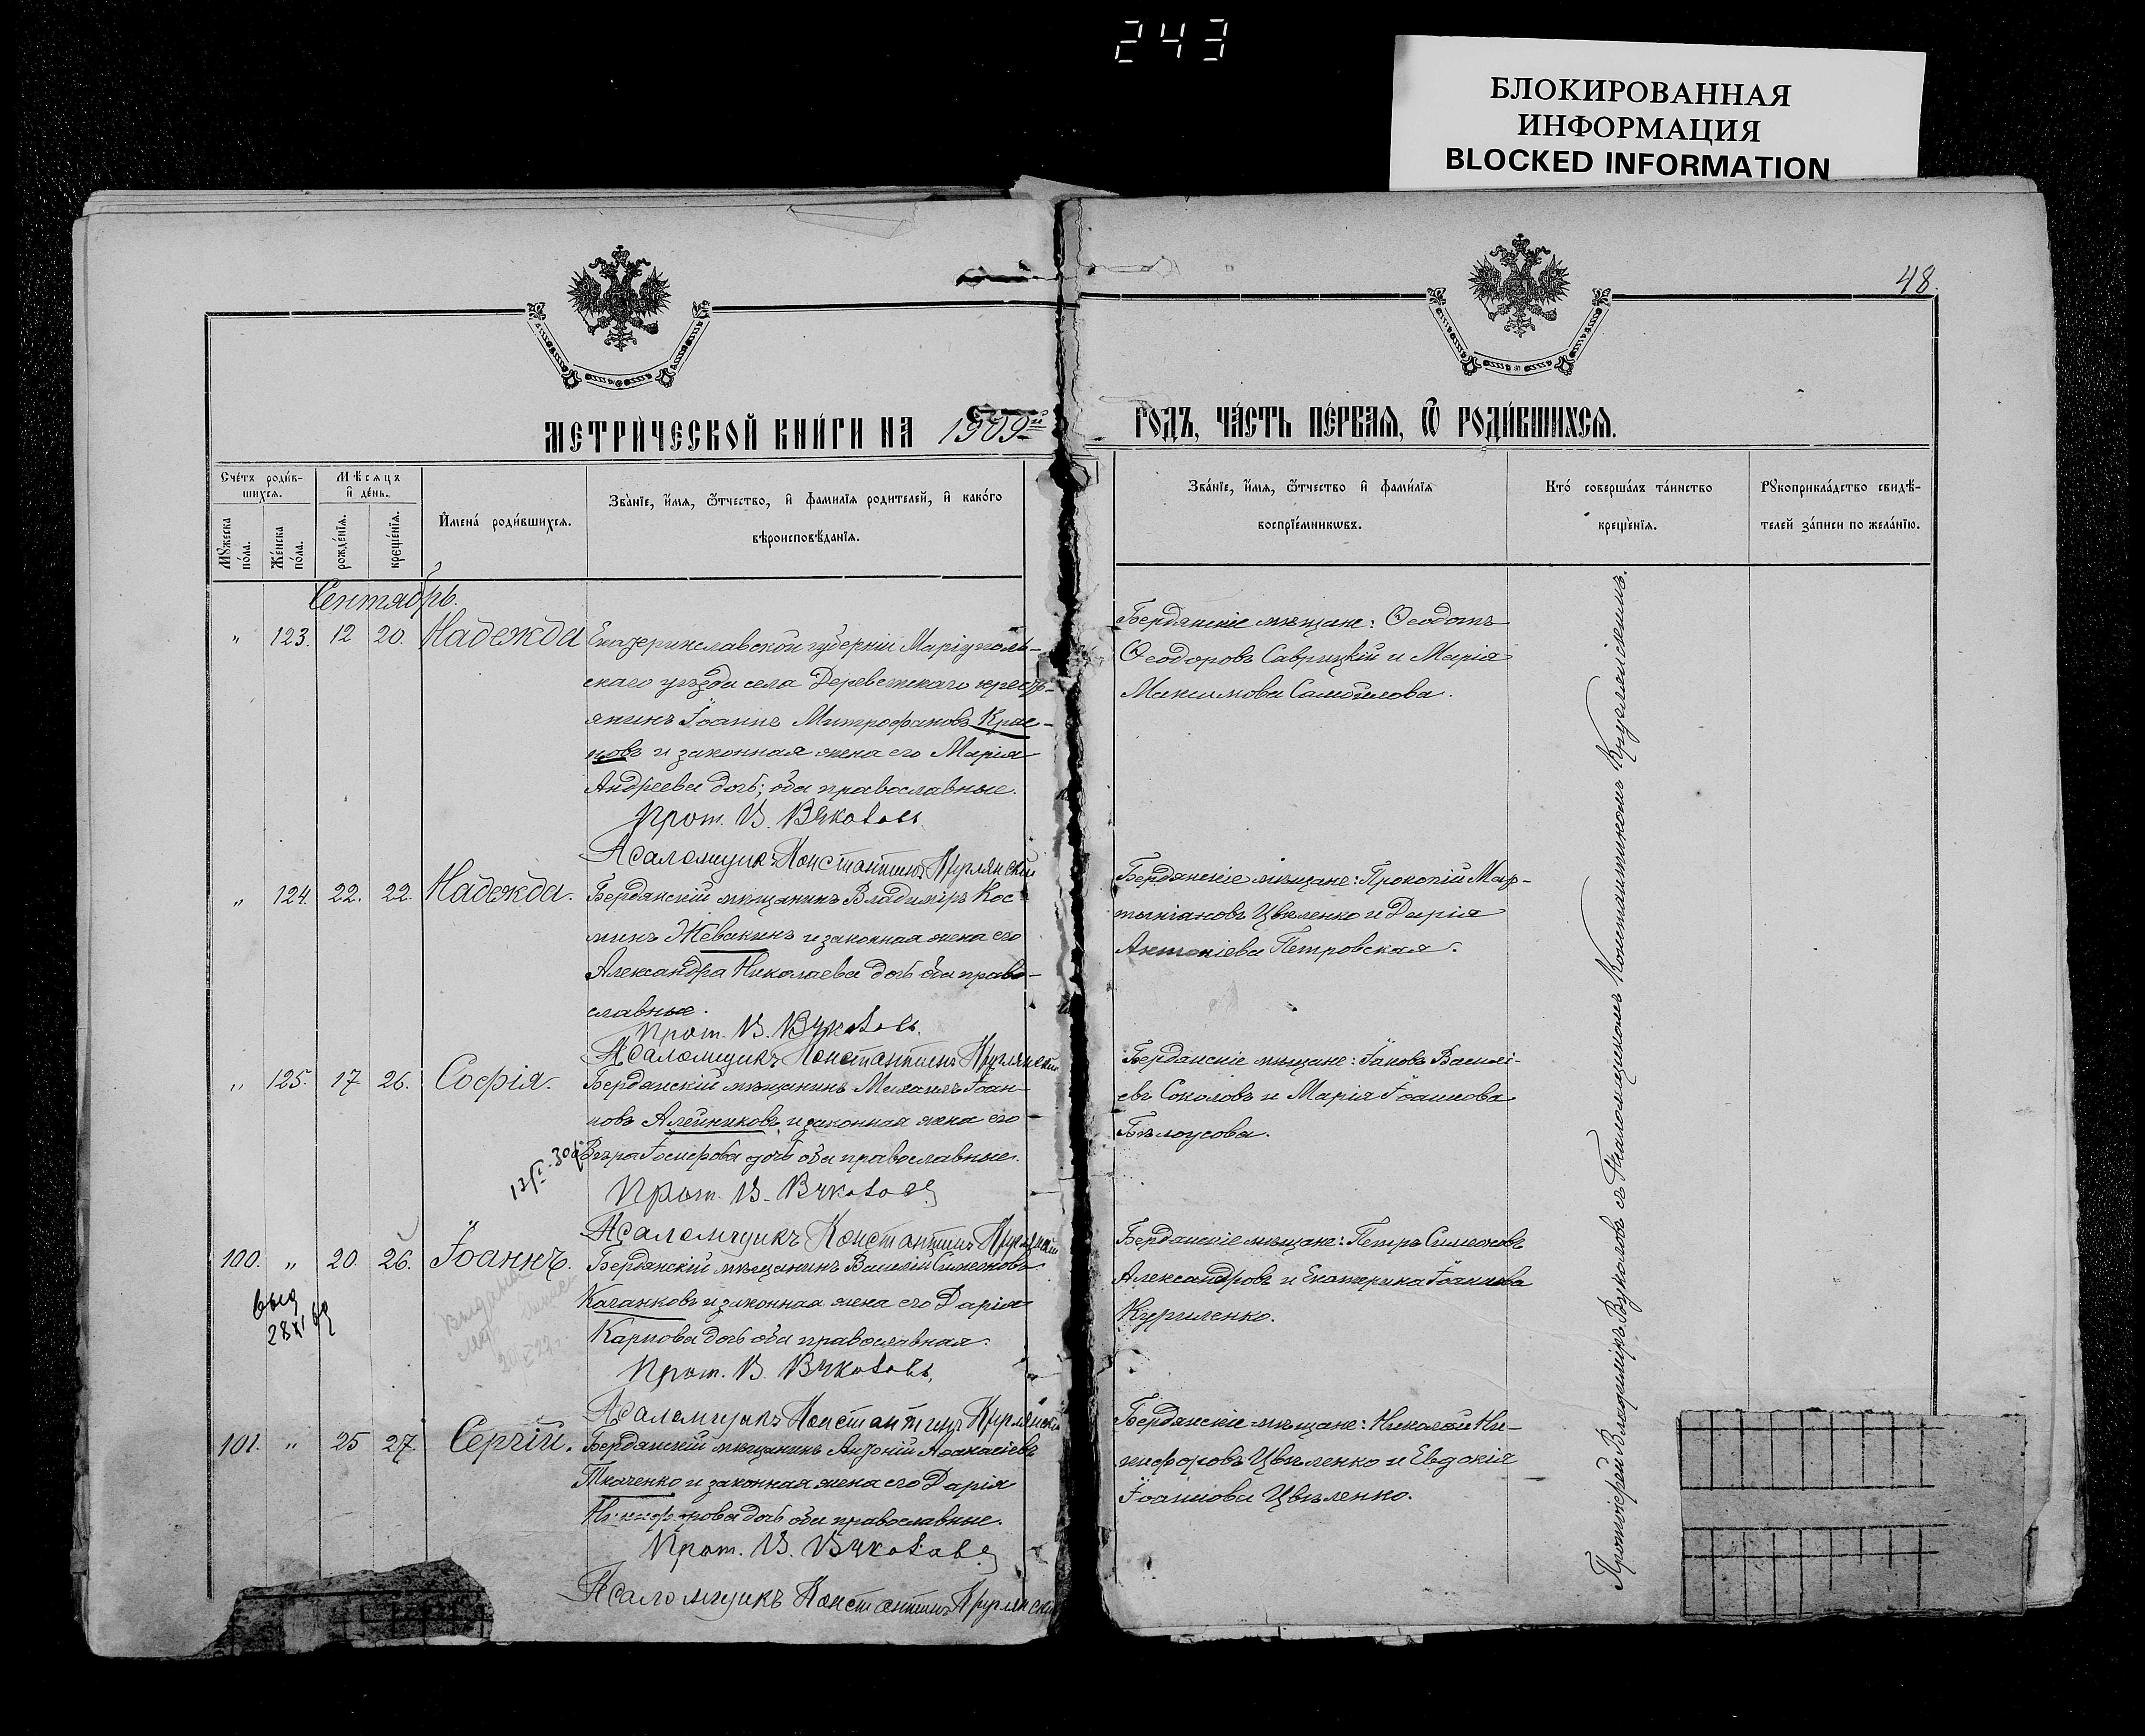 243
БЛОКИРОВАННАЯ
ИНФОРМАЦИЯ
BLOCKED INFORMATION
48.
МЕТРИ́ЧЕСКОЙ КНИ́ГИ НА 1909й
ГОДЪ, ЧА́СТЬ ПЕ́РВАѦ, Ѿ РОДИ́ВШИХСѦ.
Сче́тъ роди́в-
шихсѧ.
Мѣ́сѧцъ
и҆ де́нь.
Мꙋ́жеска по́ла.
Же́нска по́ла.
рожде́нїѧ.
креще́нїѧ.
И҆мена́ роди́вшихсѧ.
Зва́нїе, и҆́мѧ, ѻ҆́тчество, и҆ фами́лїѧ родителей, и҆ како́го
вѣроисповѣ́данїѧ.
Зва́нїе, и҆́мѧ, ѻ҆́тчество и҆ фами́лїѧ
воспрїе́мникѡвъ.
Кто́ соверша́лъ та́инство
креще́нїѧ.
Рꙋкоприкла́дство свидѣ́-
телей за́писи по жела́нїю.
Сентябрь.
„ 123. 12 20. Надежда
Екатеринславской губерніи Маріуполь-
скаго уѣзда села Деревецкаго крест-
янинъ Іоаннъ Митрофановъ Крас-
новъ и законная жена его Марія
Андреева дочь; оба православные.
Прот. В. Вуколовъ
Псаломщикъ Константинъ Круглянскій
Бердянскіе мѣщане: Ѳеодотъ
Ѳеодоровъ Саврицкій и Марія
Максимова Самойлова.
„ 124. 22. 22. Надежда.
Бердянскій мѣщанинъ Владиміръ Кос-
минъ Жевакинъ и законная жена его
Александра Николаева дочь оба право-
славные.
Прот. В. Вуколовъ.
Псаломщикъ Константинъ Круглянскій
Бердянскіе мѣщане: Прокопій Мар-
Цвѣленко и Дарія
Антоніева Петровская.
„ 125. 17 26. Софія.
Бердянскій мѣщанинъ Михаилъ Іоан-
новъ Алейниковъ и законная жена его
Вѣра Іосифова дочь оба православные.
Прот. В. Вуколовъ
Псаломщикъ Константинъ Круглянскій
Бердянскіе мѣщане: Іаковъ Василі-
евъ Соколовъ и Марія Іоаннова
Бѣлоусова.
100. „ 20. 26. Іоаннъ.
выд
28 XI
Бердянскій мѣщанинъ Василій Симеоновъ
Каганковъ и законная жена его Дарія
Карпова дочь оба православная.
Прот. В. Вуколовъ.
Псаломщикъ Константинъ Круглянскій
Бердянскіе мѣщане: Петръ Симеоновъ
Александровъ и Екатерина Іоаннова
Куриленко.
101. „ 25 27. Сергій.
Бердянскій мѣщанинъ Антоній Аѳанасіевъ
Ткаченко и законная жена его Дарія
Никифорова дочь оба православные.
Прот. В. Вуколовъ
Псаломщикъ Константинъ Круглянскій
Бердянскіе мѣщане: Николай Ни-
кифоровъ Цвѣленко и Евдокія
Іоаннова Цвѣленко.
Протоіерей Владиміръ Вуколовъ съ Псаломщикомъ Константиномъ Круглянскимъ.